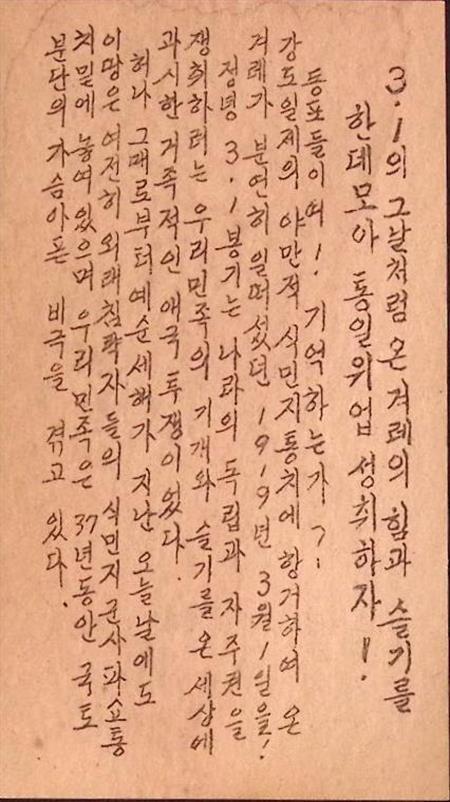 3.1의 그날처럼 온겨레의 힘과 슬기를
한데모아 통일위업 성취하자!
동포들이여! 기억하는가?
강도일제의 야만적 식민지통치에 항거하여 온
겨레가 분연히 일떠섰던 1919년 3월1일을!
정녕 3.1봉기는 나라의 독립과 자주권을
쟁취하려는 우리민족의 기개와 슬기를 온세상에
과시한 거족적인 애국투쟁이었다.
허나 그때로부터 예순세해가 지난 오늘날에도
이땅은 여전히 외래침략자들의 식민지 군사파쇼통
치밑에 놓여있으며 우리민족은 37년동안 국토
분단의 가슴아픈 비극을 겪고 있다.